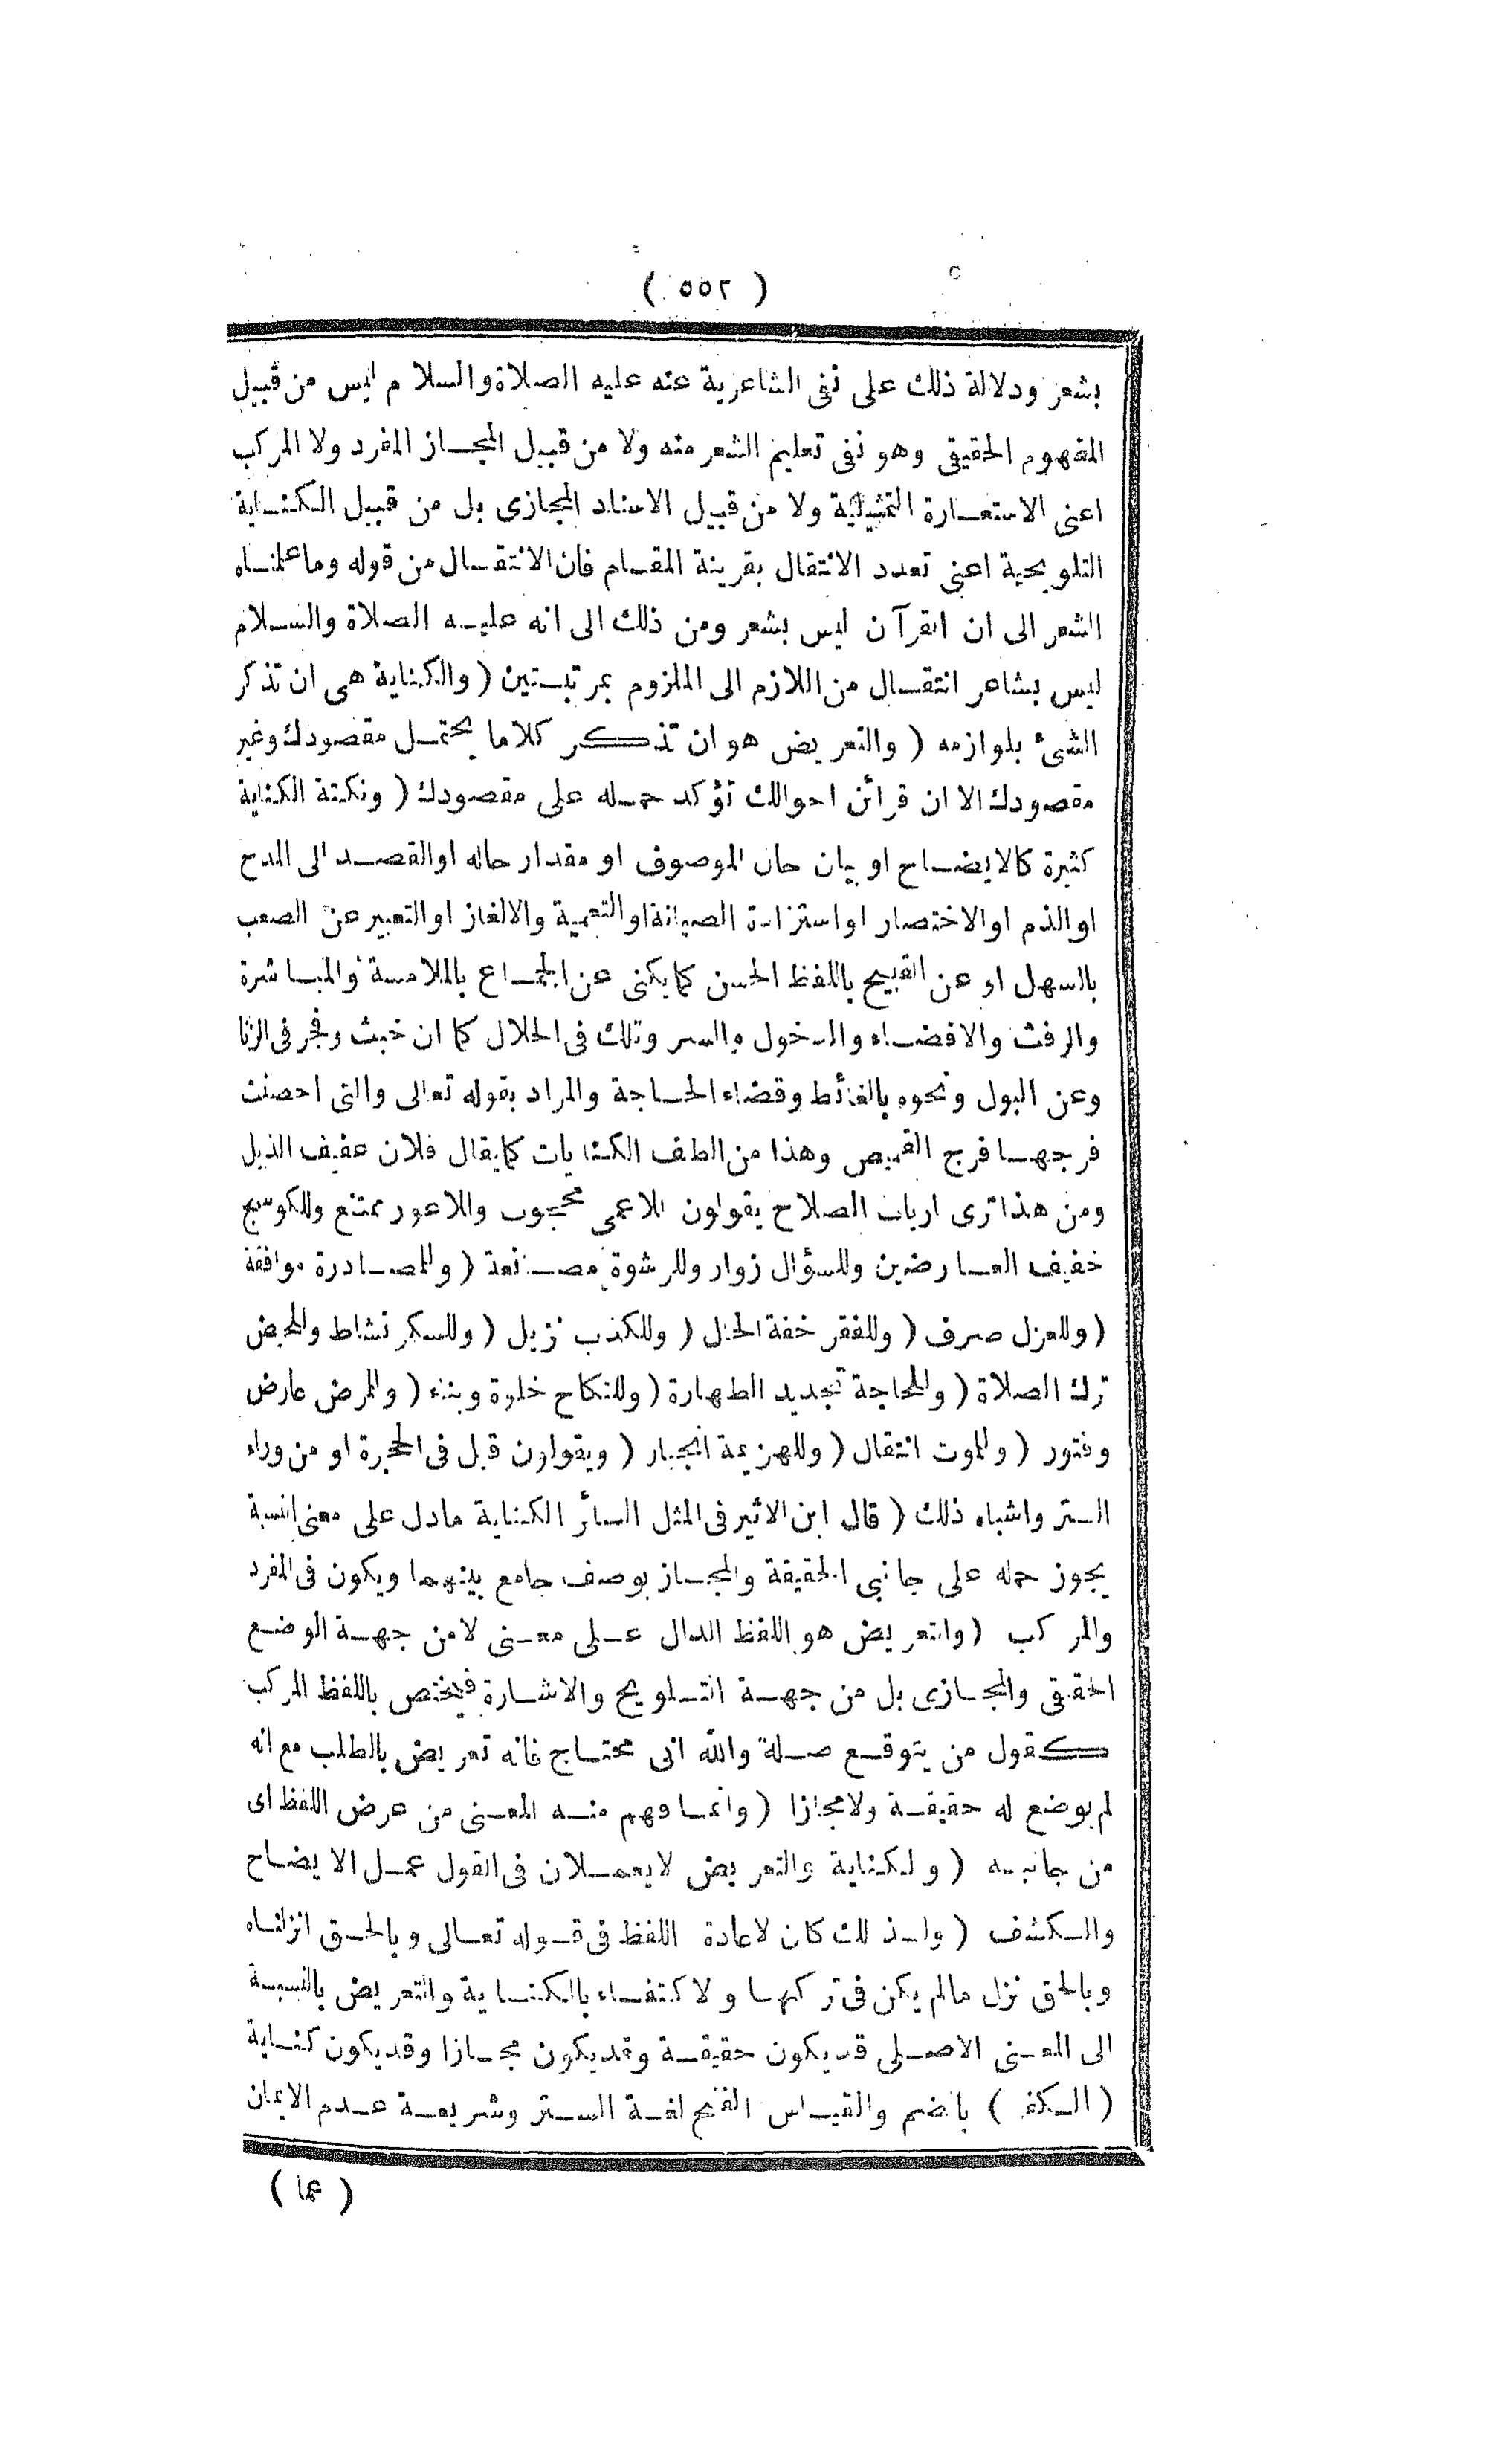 ( ٥٥٢ )
بشعر ودلالة ذلك على نفى الشاعرية عنه عليه الصلاة والسلام ليس من قبيل
المفهوم الحقيقى وهو نفى تعليم الشعر منه ولا من قبيل المجاز المفرد ولا المركب
اعنى الاستعارة التمثيلية ولا من قبيل الاسناد المجازى بل من قبيل الكناية
التلويحية اعنى تعدد الانتقال بقرينة المقام فان الانتقال من قوله وما علمناه
الشعر الى ان القرآن ليس بشعر ومن ذلك الى انه عليه الصلاة والسلام
ليس بشاعر انتقال من اللازم الى الملزوم بمرتبتين ( والكناية هى ان تذكر
الشئ بلوازمه ( والتعريض هو ان تذكر كلاما يحتمل مقصودك وغير
مقصودك الا ان قرائن احوالك تؤكد حمله على مقصودك ( ونكتة الكناية
كثيرة كالايضاح او بيان حال الموصوف او مقدار حاله او القصد الى المدح
او الذم او الاختصار او استزادة الصيانة او التعمية والالغاز او التعبير عن الصعب
بالسهل او عن القبيح باللفظ الحسن كما يكنى عن الجماع بالملامسة والمباشرة
والرفث والافضاء والدخول والسر وتلك فى الحلال كما ان خبث وفجر فى الزنا
وعن البول ونحوه بالغائط وقضاء الحاجة والمراد بقوله تعالى والتى احصنت
فرجها فرج القميص وهذا من الطف الكنايات كما يقال فلان عفيف الذيل
ومن هذا ترى ارباب الصلاح يقولون للاعمى محجوب وللاعور ممتنع وللكوسج
خفيف العارضين وللسؤال زوار وللرشوة مصانعة ( وللمصادرة موافقة
( وللعزل صرف ( وللفقر خفة الحال ( وللكذب نزيل ( وللسكر نشاط وللحيض
ترك الصلاة ( وللحاجة تجديد الطهارة ( وللنكاح خلوة وبناء ( وللمرض عارض
وفتور ( وللموت انتقال ( وللهزيمة انحياز ( ويقولون قبل فى الحجرة او من وراء
الستر واشباه ذلك ( قال ابن الاثير فى المثل السائر الكناية مادل على معنى
يجوز حمله على جانبى الحقيقة والمجاز بوصف جامع بينهما ويكون فى المفرد
والمركب ( والتعريض هو اللفظ الدال على معنى لا من جهة الوضع
الحقيقى والمجازى بل من جهة التلويح والاشارة فيختص باللفظ المركب
كقول من يتوقع صلة والله انى محتاج فانه تعريض بالطلب مع انه
لم يوضع له حقيقة ولا مجازا ( وانما فهم منه المعنى من عرض اللفظ اى
من جانبه ( والكناية والتعريض لا يعملان فى القول عمل الايضاح
والكشف ( ولذلك كان لاعادة اللفظ فى قوله تعالى وبالحق انزلناه
وبالحق نزل مالم يكن فى تركها ولا كتفاء بالكناية والتعريض بالنسبة
الى المعنى الاصلى قد يكون حقيقة وقد يكون مجازا وقد يكون كناية
( الكفر ) بالضم والقياس الفتح لغة الستر وشريعة عدم الايمان
( عما )